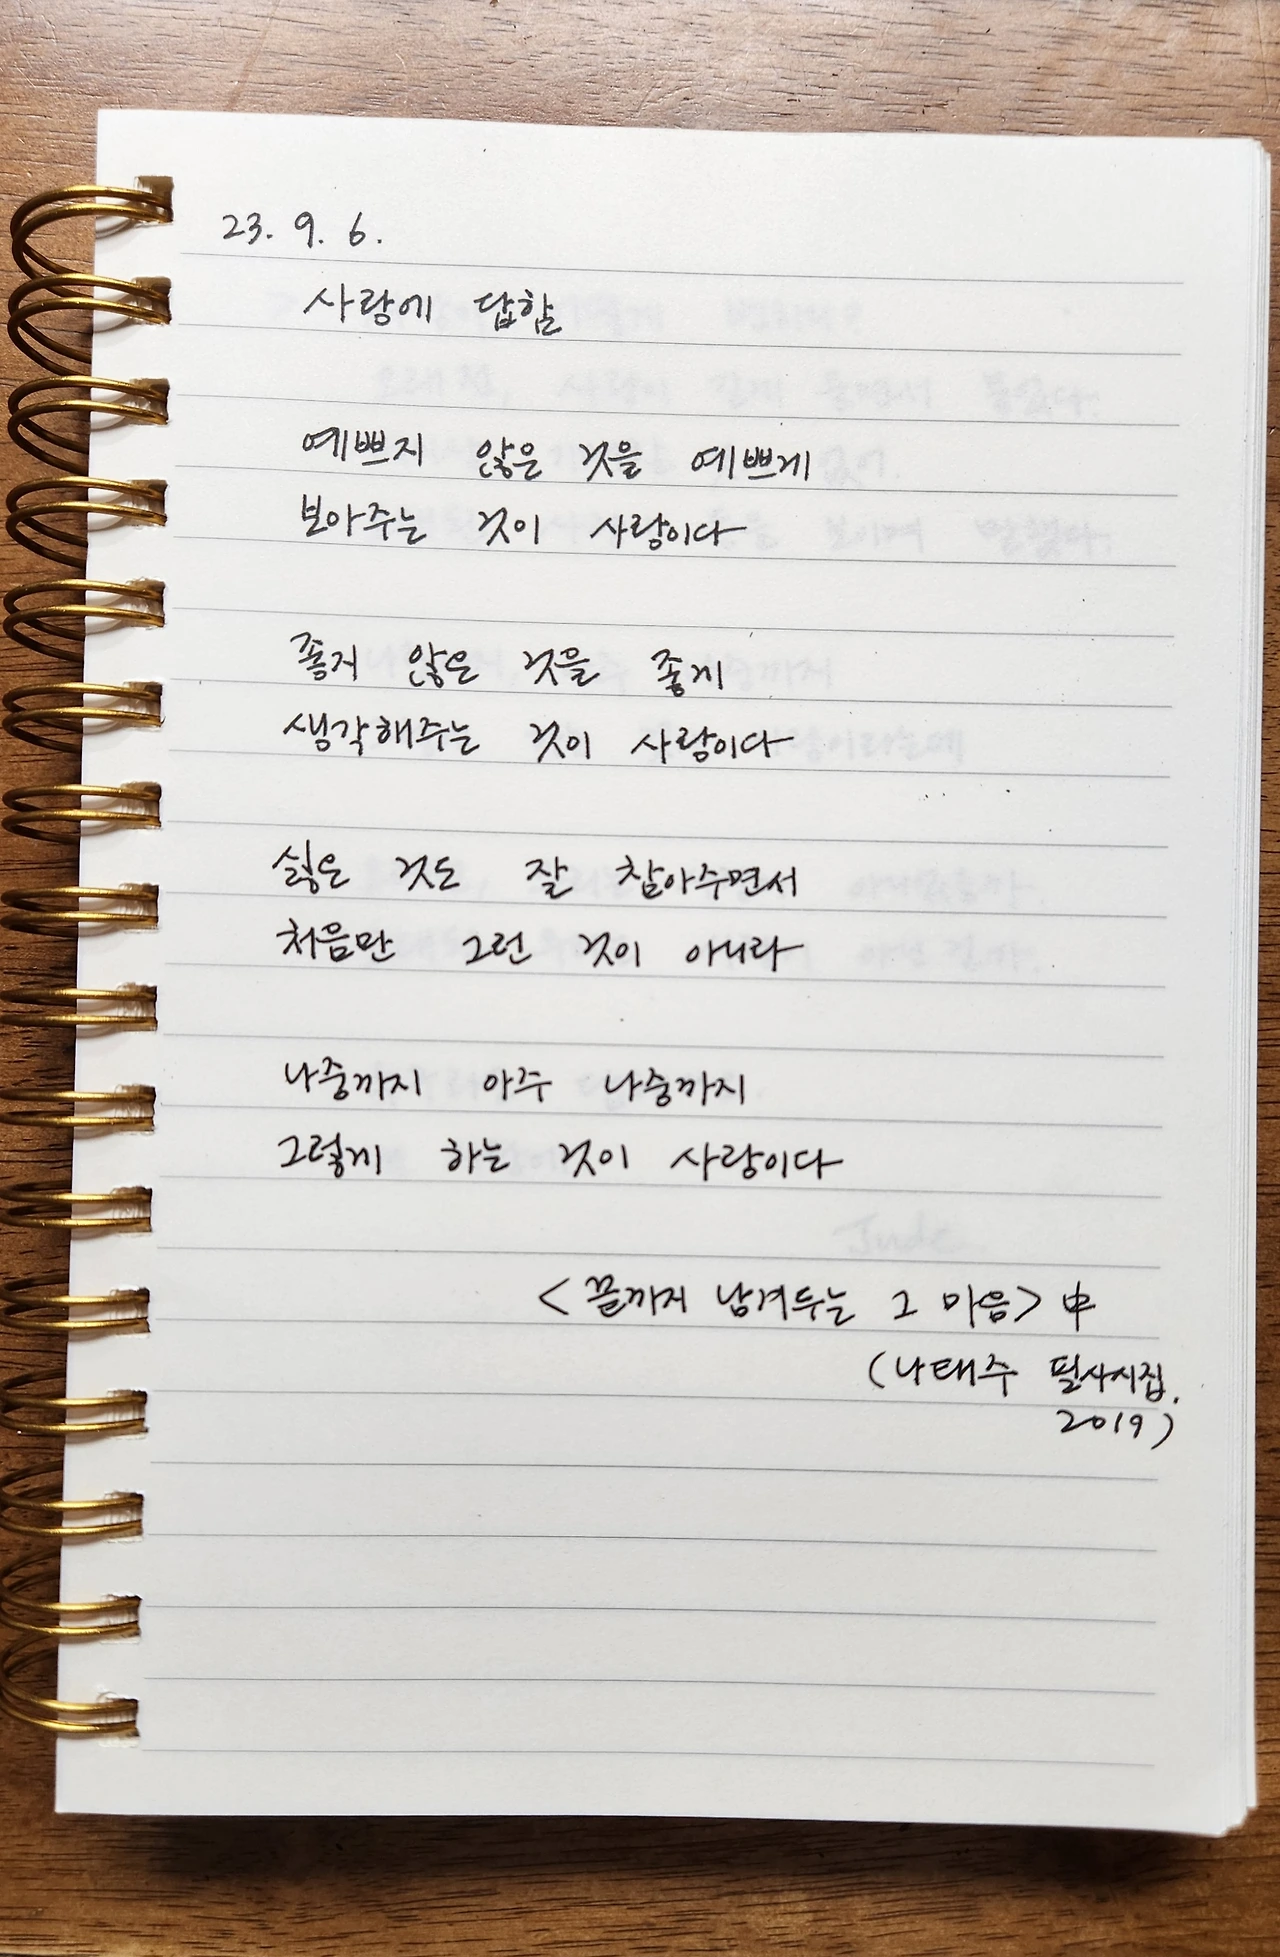 23. 9. 6.
사랑에 답함
예쁘지 않은 것을 예쁘게
보아주는 것이 사랑이다
좋지 않은 것을 좋게
생각해주는 것이 사랑이다
싫은 것도 잘 참아주면서
처음만 그런 것이 아니라
나중까지 아주 나중까지
그렇게 하는 것이 사랑이다
<끝까지 남겨두는 그 마음> 中
(나태주 필사시집.
2019)